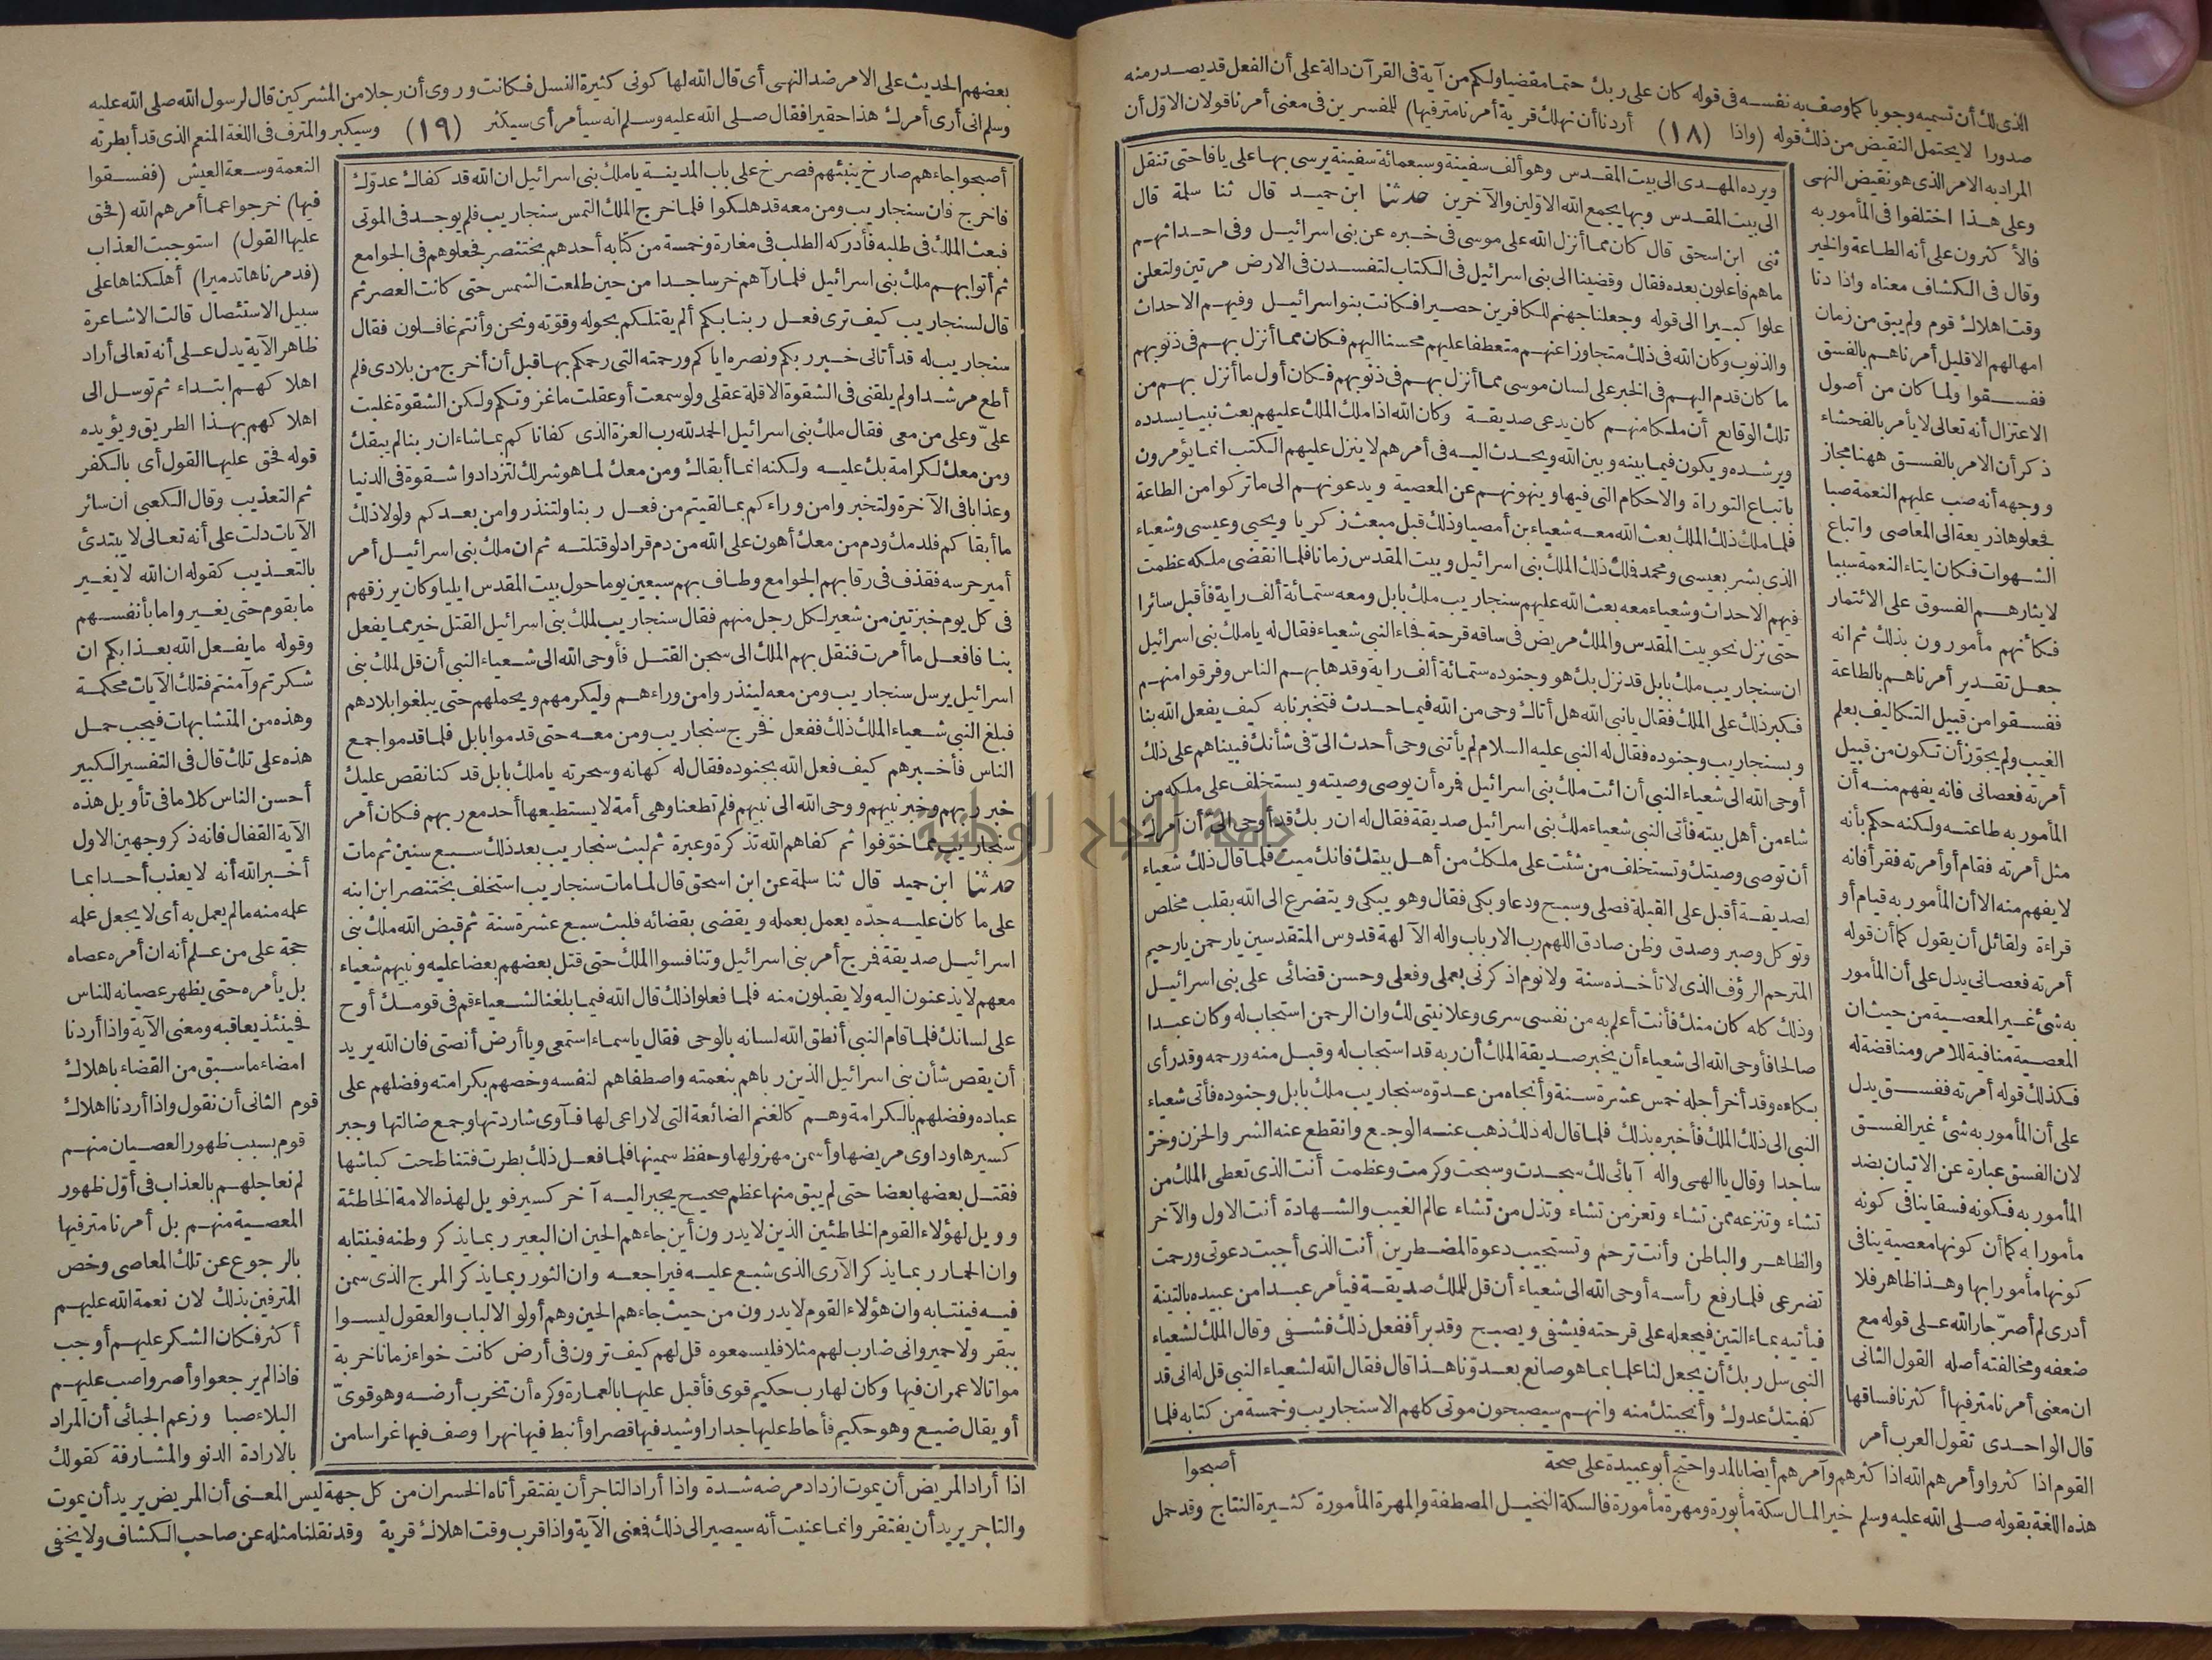 الذى لك أن تسميه وجوبا كما وصف به نفسه فى قوله كان على ربك حتما مقضيا ولكم من آية فى القرآن دالة على أن الفعل قد يصدر منه
صدورا لا يحتمل النقيض من ذلك قوله (واذا (١٨) أردنا أن نهلك قرية أمرنا مترفيها) للمفسرين فى معنى أمرنا قولان الاوّل أن
المراد به الامر الذى هو نقيض النهى
وعلى هذا اختلفوا فى المأمور به
فالأكثرون على أنه الطاعة والخير
وقال فى الكشاف معناه واذا دنا
وقت اهلاك قوم ولم يبق من زمان
امهالهم الا قليل أمرناهم بالفسق
ففسقوا ولما كان من أصول
الاعتزال أنه تعالى لا يأمر بالفحشاء
ذكر أن الامر بالفسق ههنا مجاز
ووجهه أنه صب عليهم النعمة صبا
فجعلوها ذريعة الى المعاصى واتباع
الشهوات فكان ايتاء النعمة سببا
لايثارهم الفسوق على الائتمار
فكأنهم مأمورون بذلك ثم انه
جعل تقدير أمرناهم بالطاعة
ففسقوا من قبيل التكاليف بعلم
الغيب ولم يجوّز أن تكون من قبيل
أمرته فعصانى فانه يفهم منه أن
المأمور به طاعته ولكنه حكم بأنه
مثل أمرته فقام أو أمرته فقرأ فانه
لا يفهم منه الا أن المأمور به قيام أو
قراءة ولقائل أن يقول كما أن قوله
أمرته فعصانى يدل على أن المأمور
به شئ غير المعصية من حيث ان
المعصية منافية للامر ومناقضة له
فكذلك قوله أمرته ففسق يدل
على أن المأمور به شئ غير الفسق
لان الفسق عبارة عن الاتيان بضد
المأمور به فكونه فسقا ينافى كونه
مأمورا به كما أن كونها معصية ينافى
كونها مأمورا بها وهذا ظاهر فلا
أدرى لم أصرّ جار الله على قوله مع
ضعفه ومخالفته أصله القول الثانى
ان معنى أمرنا مترفيها أكثرنا فساقها
قال الواحدى تقول العرب أمر
القوم اذا كثروا وأمرهم الله اذا كثرهم وآمرهم أيضا بالمد واحتج أبو عبيدة على صحة
هذه اللغة بقوله صلى الله عليه وسلم خير المال سكة مأبورة ومهرة مأمورة فالسكة النخيل المصطفة والمهرة المأمورة كثيرة النتاج وقد حمل
ويرده المهدى الى بيت المقدس وهو ألف سفينة وسبعمائة سفينة يرسى بها على يافا حتى تنقل
الى بيت المقدس وبها يجمع الله الاوّلين والآخرين حدثنا ابن حميد قال ثنا سلمة قال
ثنى ابن اسحق قال كان مما أنزل الله على موسى فى خبره عن بنى اسرائيل وفى احداثهم
ما هم فاعلون بعده فقال وقضينا الى بنى اسرائيل فى الكتاب لتفسدن فى الارض مرتين ولتعلن
علوا كبيرا الى قوله وجعلنا جهنم للكافرين حصيرا فكانت بنو اسرائيل وفيهم الاحداث
والذنوب وكان الله فى ذلك متجاوزا عنهم متعطفا عليهم محسنا اليهم فكان مما أنزل بهم فى ذنوبهم
ما كان قدم اليهم فى الخبر على لسان موسى مما أنزل بهم فى ذنوبهم فكان أول ما أنزل بهم من
تلك الوقائع أن ملكا منهم كان يدعى صديقة وكان الله اذا ملك الملك عليهم بعث نبيا يسدده
ويرشده ويكون فيما بينه وبين الله ويحدث اليه فى أمرهم لا ينزل عليهم الكتب انما يؤمرون
باتباع التوراة والاحكام التى فيها وينهونهم عن المعصية ويدعونهم الى ما تركوا من الطاعة
فلما ملك ذلك الملك بعث الله معه شعياء بن أمصيا وذلك قبل مبعث زكريا ويحيى وعيسى وشعياء
الذى بشر بعيسى ومحمد فملك ذلك الملك بنى اسرائيل وبيت المقدس زمانا فلما انقضى ملكه عظمت
فيهم الاحداث وشعياء معه بعث الله عليهم سنجاريب ملك بابل ومعه ستمائة ألف راية فأقبل سائرا
حتى نزل نحو بيت المقدس والملك مريض فى ساقه قرحة فجاء النبى شعياء فقال له يا ملك بنى اسرائيل
ان سنجاريب ملك بابل قد نزل بك هو وجنوده ستمائة ألف راية وقد هابهم الناس وفرقوا منهم
فكبر ذلك على الملك فقال يا نبى الله هل أتاك وحى من الله فيما حدث فتخبرنا به كيف يفعل الله بنا
وبسنجاريب وجنوده فقال له النبى عليه السلام لم يأتنى وحى أحدث الىّ فى شأنك فبيناهم على ذلك
أوحى الله الى شعياء النبى أن ائت ملك بنى اسرائيل فمره أن يوصى وصيته ويستخلف على ملكه من
شاء من أهل بيته فأتى النبى شعياء ملك بنى اسرائيل صديقة فقال له ان ربك قد أوحى الىّ أن آمرك
أن توصى وصيتك وتستخلف من شئت على ملكك من أهل بيتك فانك ميت فلما قال ذلك شعياء
لصديقة أقبل على القبلة فصلى وسبح ودعا وبكى فقال وهو يبكى ويتضرع الى الله بقلب مخلص
وتوكل وصبر وصدق وظن صادق اللهم رب الارباب واله الآلهة قدوس المتقدسين يا رحمن يا رحيم
المترحم الرؤف الذى لا تأخذه سنة ولا نوم اذكرنى بعملى وفعلى وحسن قضائى على بنى اسرائيل
وذلك كله كان منك فأنت أعلم به من نفسى سرى وعلانيتى لك وان الرحمن استجاب له وكان عبدا
صالحا فأوحى الله الى شعياء أن يخبر صديقة الملك أن ربه قد استجاب له وقبل منه ورحمه وقد رأى
بكاءه وقد أخر أجله خمس عشرة سنة وأنجاه من عدوّه سنجاريب ملك بابل وجنوده فأتى شعياء
النبى الى ذلك الملك فأخبره بذلك فلما قال له ذلك ذهب عنه الوجع وانقطع عنه الشر والحزن وخرّ
ساجدا وقال يا الهى واله آبائى لك سجدت وسبحت وكرمت وعظمت أنت الذى تعطى الملك من
تشاء وتنزعه ممن تشاء وتعز من تشاء وتذل من تشاء عالم الغيب والشهادة أنت الاول والآخر
والظاهر والباطن وأنت ترحم وتستجيب دعوة المضطرين أنت الذى أجبت دعوتى ورحمت
تضرعى فلما رفع رأسه أوحى الله الى شعياء أن قل للملك صديقة فيأمر عبدا من عبيده بالتينة
فيأتيه بماء التين فيجعله على قرحته فيشفى ويصبح وقد برأ ففعل ذلك فشفى وقال الملك لشعياء
النبى سل ربك أن يجعل لنا علما بما هو صانع بعدوّنا هذا قال فقال الله لشعياء النبى قل له انى قد
كفيتك عدوك وأنجيتك منه وانهم سيصبحون موتى كلهم الا سنجاريب وخمسة من كتابه فلما
أصبحوا
بعضهم الحديث على الامر ضد النهى أى قال الله لها كونى كثيرة النسل فكانت وروى أن رجلا من المشركين قال لرسول الله صلى الله عليه
وسلم انى أرى أمرك هذا حقيرا فقال صلى الله عليه وسلم انه سيأمر أى سيكثر (١٩) وسيكبر والمترف فى اللغة المنعم الذى قد أبطرته
أصبحوا جاءهم صارخ ينبئهم فصرخ على باب المدينة يا ملك بنى اسرائيل ان الله قد كفاك عدوّك
فاخرج فان سنجاريب ومن معه قد هلكوا فلما خرج الملك التمس سنجاريب فلم يوجد فى الموتى
فبعث الملك فى طلبه فأدركه الطلب فى مغارة وخمسة من كتابه أحدهم بختنصر فجعلوهم فى الجوامع
ثم أتوا بهم ملك بنى اسرائيل فلما رآهم خر ساجدا من حين طلعت الشمس حتى كانت العصر ثم
قال لسنجاريب كيف ترى فعل ربنا بكم ألم يقتلكم بحوله وقوّته ونحن وأنتم غافلون فقال
سنجاريب له قد أتانى خبر ربكم ونصره اياكم ورحمته التى رحمكم بها قبل أن أخرج من بلادى فلم
أطع مرشدا ولم يلقنى فى الشقوة الا قلة عقلى ولو سمعت أو عقلت ما غزوتكم ولكن الشقوة غلبت
علىّ وعلى من معى فقال ملك بنى اسرائيل الحمد لله رب العزة الذى كفاناكم بما شاء ان ربنا لم يبقك
ومن معك لكرامة بك عليه ولكنه انما أبقاك ومن معك لما هو شر لك لتزدادوا شقوة فى الدنيا
وعذابا فى الآخرة ولتخبروا من وراءكم بما لقيتم من فعل ربنا ولتنذروا من بعدكم ولولا ذلك
ما أبقاكم فلدمك ودم من معك أهون على الله من دم قراد لو قتلته ثم ان ملك بنى اسرائيل أمر
أمير حرسه فقذف فى رقابهم الجوامع وطاف بهم سبعين يوما حول بيت المقدس ايليا وكان يرزقهم
فى كل يوم خبزتين من شعير لكل رجل منهم فقال سنجاريب لملك بنى اسرائيل القتل خير مما يفعل
بنا فافعل ما أمرت فنقل بهم الملك الى سجن القتل فأوحى الله الى شعياء النبى أن قل لملك بنى
اسرائيل يرسل سنجاريب ومن معه لينذروا من وراءهم وليكرمهم ويحملهم حتى يبلغوا بلادهم
فبلغ النبى شعياء الملك ذلك ففعل فخرج سنجاريب ومن معه حتى قدموا بابل فلما قدموا جمع
الناس فأخبرهم كيف فعل الله بجنوده فقال له كهانه وسحرته يا ملك بابل قد كنا نقص عليك
خبر ربهم وخبر نبيهم ووحى الله الى نبيهم فلم تطعنا وهى أمة لا يستطيعها أحد مع ربهم فكان أمر
سنجاريب مما خوّفوا ثم كفاهم الله تذكرة وعبرة ثم لبث سنجاريب بعد ذلك سبع سنين ثم مات
حدثنا ابن حميد قال ثنا سلمة عن ابن اسحق قال لما مات سنجاريب استخلف بختنصر ابن ابنه
على ما كان عليه جدّه يعمل بعمله ويقضى بقضائه فلبث سبع عشرة سنة ثم قبض الله ملك بنى
اسرائيل صديقة فمرج أمر بنى اسرائيل وتنافسوا الملك حتى قتل بعضهم بعضا عليه ونبيهم شعياء
معهم لا يذعنون اليه ولا يقبلون منه فلما فعلوا ذلك قال الله فيما بلغنا لشعياء قم فى قومك أوح
على لسانك فلما قام النبى أنطق الله لسانه بالوحى فقال يا سماء استمعى ويا أرض أنصتى فان الله يريد
أن يقص شأن بنى اسرائيل الذين رباهم بنعمته واصطفاهم لنفسه وخصهم بكرامته وفضلهم على
عباده وفضلهم بالكرامة وهم كالغنم الضائعة التى لا راعى لها فآوى شاردتها وجمع ضالتها وجبر
كسيرها وداوى مريضها وأسمن مهزولها وحفظ سمينها فلما فعل ذلك بطرت فتناطحت كباشها
فقتل بعضها بعضا حتى لم يبق منها عظم صحيح يجبر اليه آخر كسير فويل لهذه الامة الخاطئة
وويل لهؤلاء القوم الخاطئين الذين لا يدرون أين جاءهم الحين ان البعير ربما يذكر وطنه فينتابه
وان الحمار ربما يذكر الآرى الذى شبع عليه فيراجعه وان الثور ربما يذكر المرج الذى سمن
فيه فينتابه وان هؤلاء القوم لا يدرون من حيث جاءهم الحين وهم أولو الالباب والعقول ليسوا
ببقر ولا حمير وانى ضارب لهم مثلا فليسمعوه قل لهم كيف ترون فى أرض كانت خواء زمانا خربة
مواتا لا عمران فيها وكان لها رب حكيم قوى فأقبل عليها بالعمارة وكره أن تخرب أرضه وهو قوىّ
أو يقال ضيع وهو حكيم فأحاط عليها جدارا وشيد فيها قصرا وأنبط فيها نهرا وصف فيها غراسا من
النعمة وسعة العيش (ففسقوا
فيها) خرجوا عما أمرهم الله (فحق
عليها القول) استوجبت العذاب
(فدمرناها تدميرا) أهلكناها على
سبيل الاستئصال قالت الاشاعرة
ظاهر الآية يدل على أنه تعالى أراد
اهلاكهم ابتداء ثم توسل الى
اهلاكهم بهذا الطريق ويؤيده
قوله فحق عليها القول أى بالكفر
ثم التعذيب وقال الكعبى ان سائر
الآيات دلت على أنه تعالى لا يبتدئ
بالتعذيب كقوله ان الله لا يغير
ما بقوم حتى يغيروا ما بأنفسهم
وقوله ما يفعل الله بعذابكم ان
شكرتم وآمنتم فتلك الآيات محكمة
وهذه من المتشابهات فيجب حمل
هذه على تلك قال فى التفسير الكبير
أحسن الناس كلاما فى تأويل هذه
الآية القفال فانه ذكر وجهين الاول
أخبر الله أنه لا يعذب أحدا بما
علمه منه ما لم يعمل به أى لا يجعل علمه
حجة على من علم أنه ان أمره عصاه
بل يأمره حتى يظهر عصيانه للناس
فحينئذ يعاقبه ومعنى الآية واذا أردنا
امضاء ما سبق من القضاء باهلاك
قوم الثانى أن نقول واذا أردنا اهلاك
قوم بسبب ظهور العصيان منهم
لم نعاجلهم بالعذاب فى أوّل ظهور
المعصية منهم بل أمرنا مترفيها
بالرجوع عن تلك المعاصى وخص
المترفين بذلك لان نعمة الله عليهم
أكثر فكان الشكر عليهم أوجب
فاذا لم يرجعوا وأصروا صب عليهم
البلاء صبا وزعم الجبائى أن المراد
بالارادة الدنو والمشارفة كقولك
اذا أراد المريض أن يموت ازداد مرضه شدة واذا أراد التاجر أن يفتقر أتاه الخسران من كل جهة ليس المعنى أن المريض يريد أن يموت
والتاجر يريد أن يفتقر وانما عنيت أنه سيصير الى ذلك فمعنى الآية واذا قرب وقت اهلاك قرية وقد نقلنا مثله عن صاحب الكشاف ولا يخفى
جامعة النجاح الوطنية